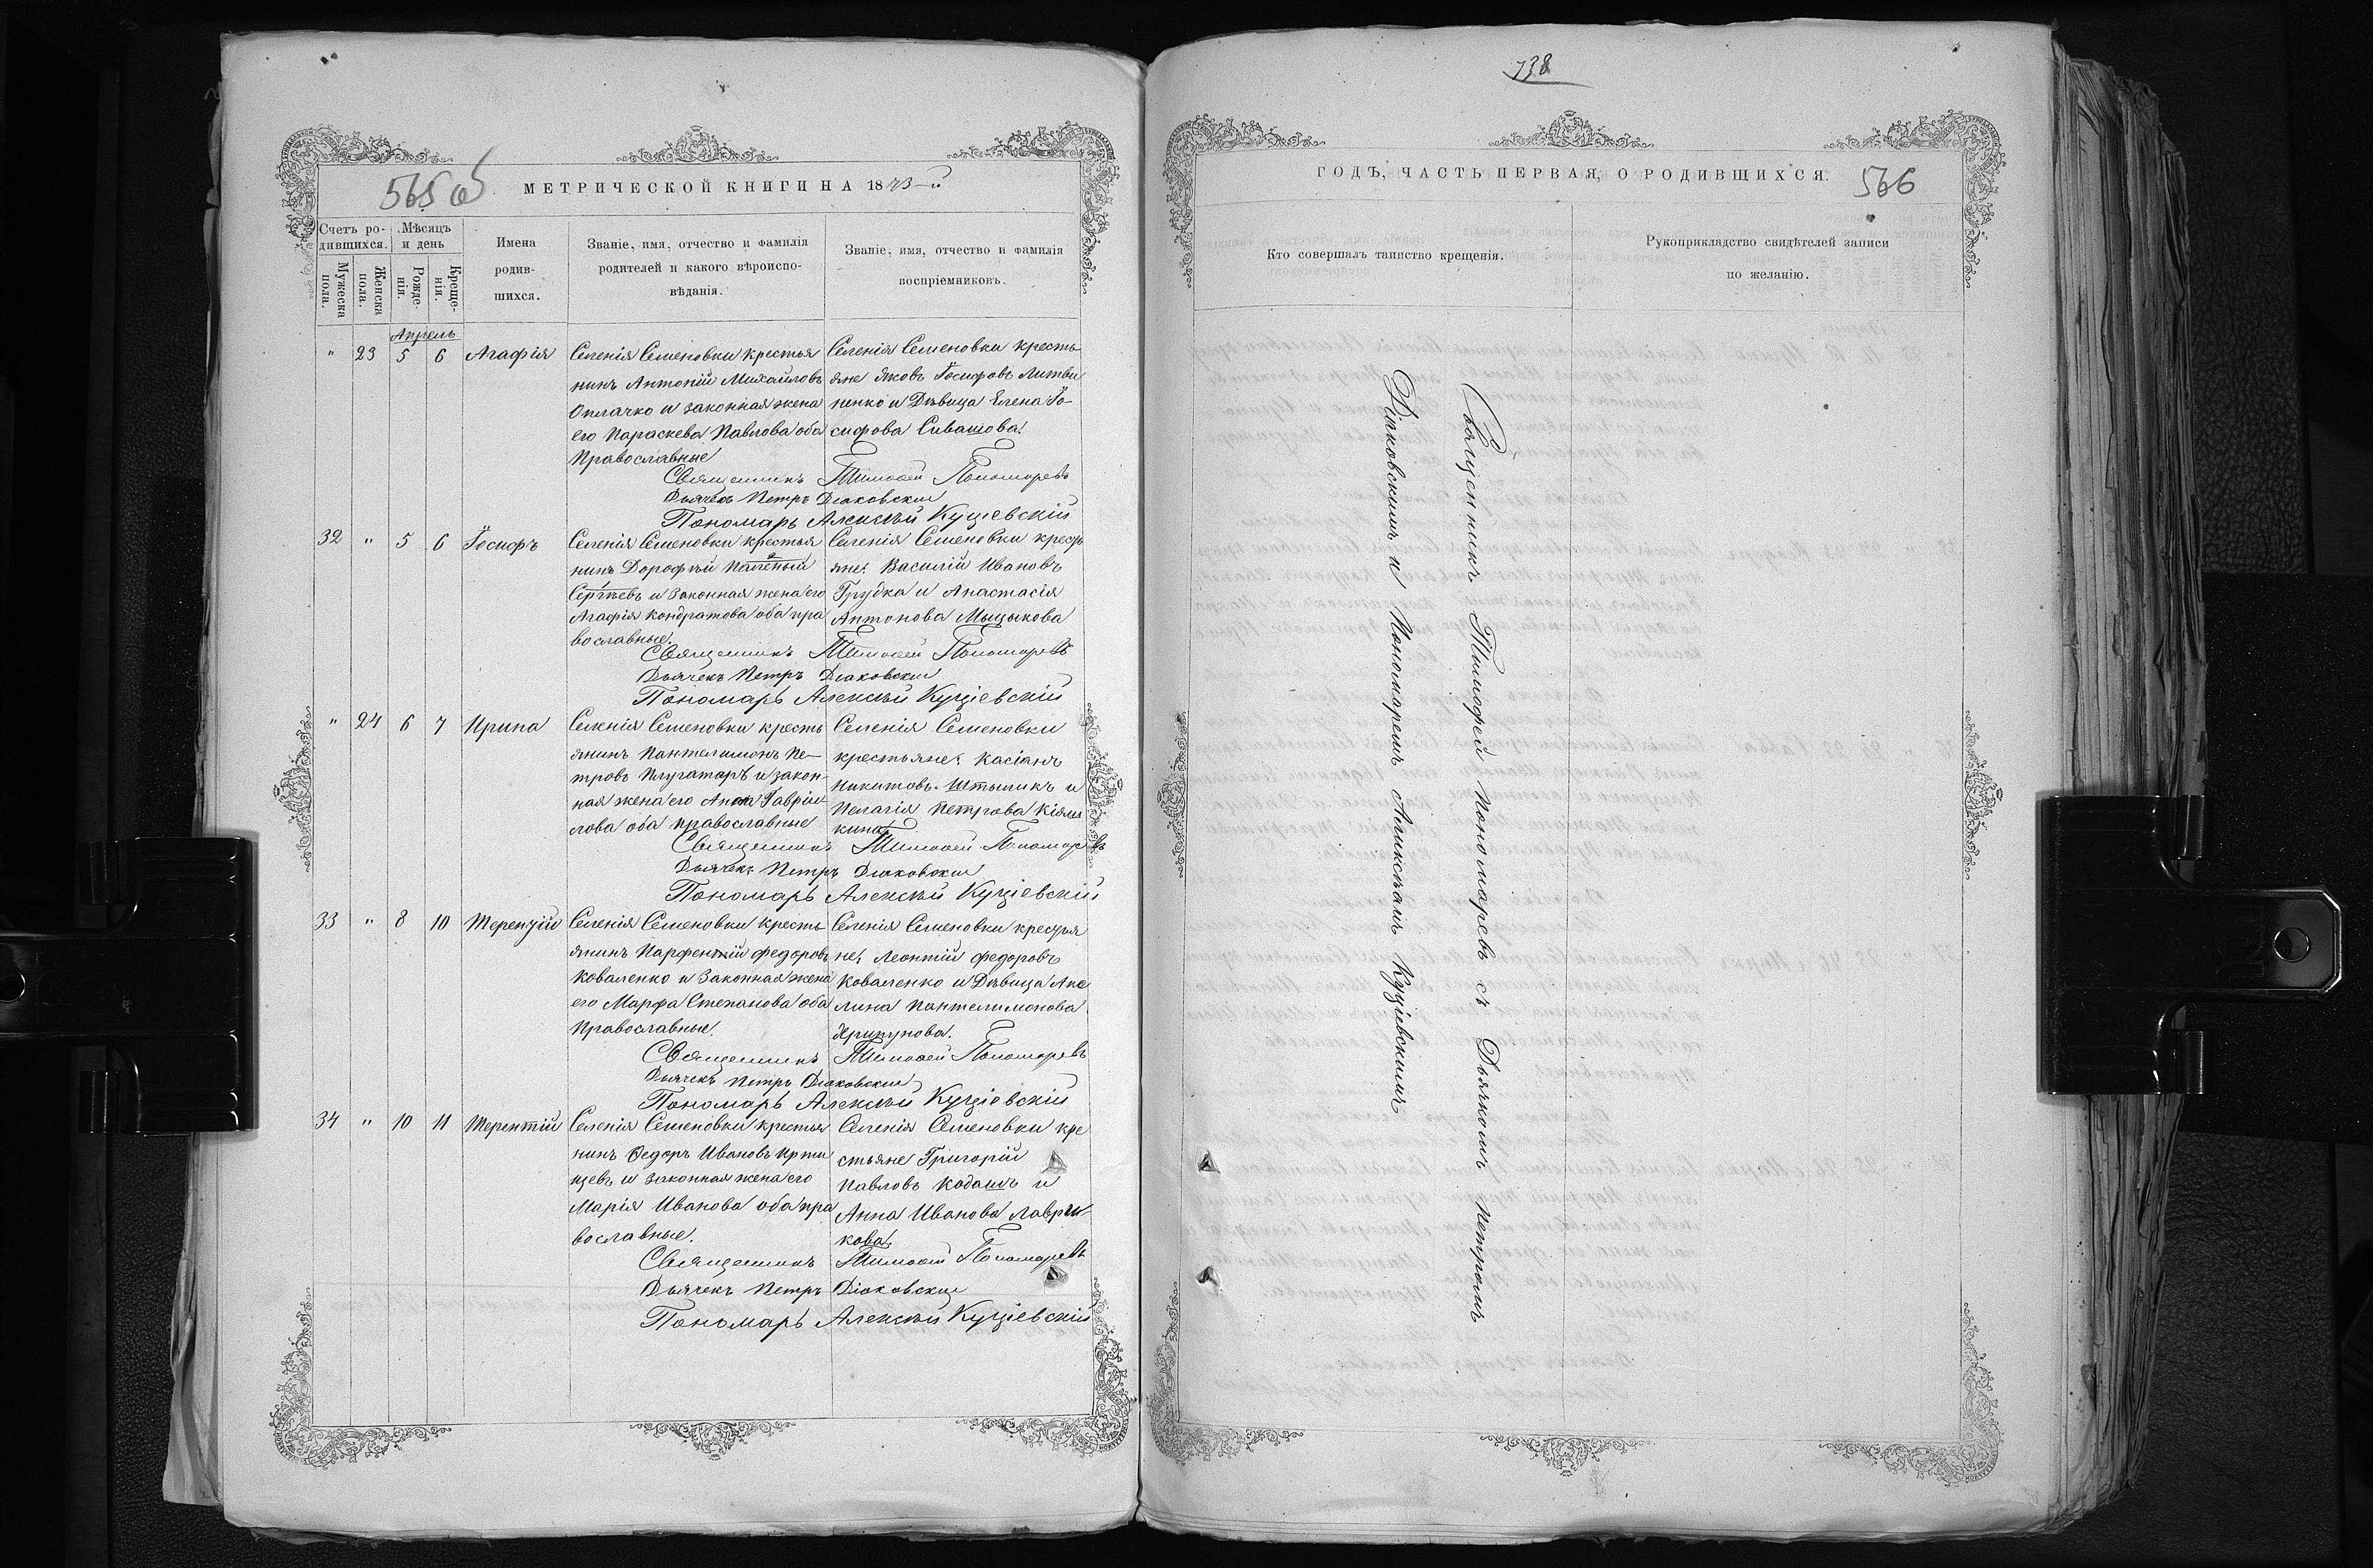 565 об
МЕТРИЧЕСКОЙ КНИГИ НА 1873-й
Счетъ ро-
дившихся.
Мѣсяцъ
и день
Мужеска
пола.
Женска
пола.
Рожде-
нія.
Креще-
нія.
Имена
родив-
шихся.
Званіе, имя, отчество и фамилія
родителей и какого вѣроиспо-
вѣданія.
Званіе, имя, отчество и фамилія
воспріемниковъ.
Апрель
" 23 5 6 Агафія
Селенія Семеновки крестья
нинъ Антоній Михайловъ
Оплачко и законная жена
его Параскева Павлова оба
Православные
Селенія Семеновки кресть
яне Яковъ Іосифовъ Литви
ненко и Дѣвица Елена Іо-
сифова Сивашова.
Священникъ Тимофей Пономаревъ
Дьячекъ Петръ Діаковскій
Пономарь Алексѣй Куціевскій
32 " 5 6 Іосифъ
Селенія Семеновки крестья
нинъ Дорофѣй
Сергѣевъ и Законная жена его
Агафія Кондратова оба пра
вославные.
Селенія Семеновки кресть
яне: Василій Ивановъ
Грудка и Анастасія
Антонова Мыцыкова
Священникъ Тимофей Пономаревъ
Дьячекъ Петръ Діаковскій
Пономарь Алексѣй Куціевскій
" 24 6 7 Ирина
Селенія Семеновки кресть
янинъ Пантелимонъ Пе-
тровъ Плугаторъ и закон-
ная жена его Анна Гаврии
лова оба православные
Селенія Семеновки
крестьяне: Касіанъ
Никитовъ Штыликъ и
Пелагія Петрова Кіяш
кина
Священникъ Тимофей Пономаревъ
Дьячекъ Петръ Діаковскій
Пономарь Алексѣй Куціевскій
33 " 8 10 Терентій
Селенія Семеновки кресть
янинъ Парфентій Федоровъ
Коваленко и Законная жена
его Марфа Степанова оба
Православные
Селенія Семеновки крестья
не: Леонтій Федоровъ
Коваленко и Дѣвица Аке
лина Пантелимонова
Хрипунова.
Священникъ Тимофей Пономаревъ
Дьячекъ Петръ Діаковскій
Пономарь Алексѣй Куціевскій
34 " 10 11 Терентій
Селенія Семеновки крестья
нинъ Ѳедоръ Ивановъ Ирти
щевъ и законная жена его
Марія Иванова оба пра
вославные.
Селенія Семеновки кре
стьяне Григорій
Павловъ Кодашъ и
Анна Иванова Лаври-
кова.
Священникъ Тимофей Пономаревъ
Дьячекъ Петръ Діаковскій
Пономарь Алексѣй Куціевскій
738
ГОДЪ, ЧАСТЬ ПЕРВАЯ, О РОДИВШИХСЯ.
566
Кто совершалъ таинство крещенія.
Рукоприкладство свидѣтелей записи
по желанію.
Священникъ Тимофей Пономаревъ съ Дьячкомъ Петромъ
Діаковскимъ и Пономаремъ Алексѣемъ Куціевскимъ